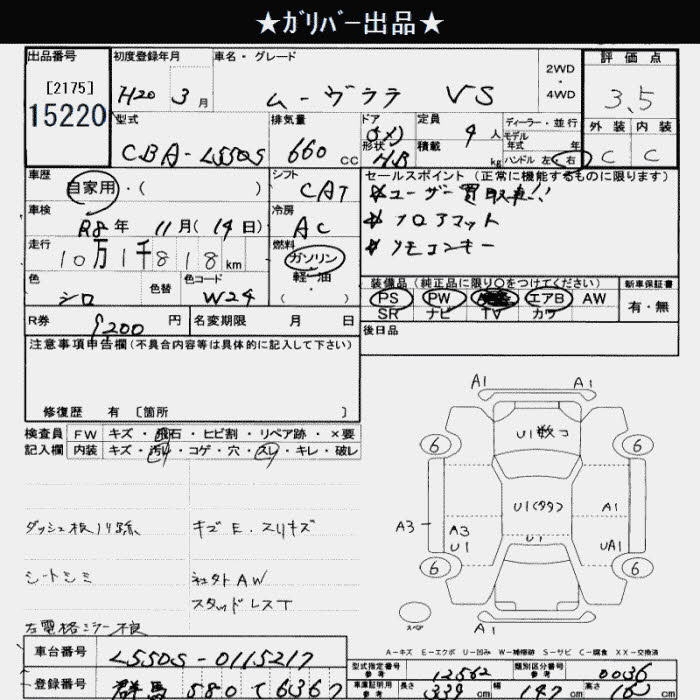 ★ｶﾞﾘﾊﾞｰ出品★
出品番号
[2175]
15220
初度登録年月
H20 3月
車名・グレード
ムーヴラテ VS
2WD
・
4WD
評価点
3.5
外装 内装
C C
型式
CBA-L550S
排気量
660 CC
ドア
形状
5D
HB
定員
4人
積載
kg
ディーラー・並行
モデル
年式 年
ハンドル 左・右
車歴
自家用・( )
シフト
CAT
セールスポイント (正常に機能するものに限ります)
＊ユーザー買取車!!
＊フロアマット
＊リモコンキー
車検
R8年 11月(14日)
冷房
AC
走行
10万1千818km
燃料
ガソリン
軽・油
・
( )
色
シロ
色替
色コード
W24
装備品 (純正品に限り〇をつけてください)
新車保証書
PS PW エアB AW
SR ナビ TV カワ
有・無
R券
9200円
名変期限 月 日
後日品
注意事項申告欄 (不具合内容等は具体的に記入して下さい)
修復歴 有 〔箇所 〕
検査員
記入欄
FW キズ・飛石・ヒビ割・リペア跡・×要
内装 キズ・汚れ・コゲ・穴・スレ・キレ・破レ
A1 A1
U1数コ
6 6
U1(タタ) A1
A3 A3
U1 U1 UA1
6 6
スペア
A1 A1
ダッシュ板ハリ跡
キズE.スリキズ
シートシミ
社外AW
スタッドレスT
左電格ミラー不良
A-キズ E-エクボ U-凹み W-補修跡 S-サビ C-腐食 XX-交換済
車台番号
L550S-0115217
登録番号
群馬 580 て 6367
型式指定番号
参考
12562
類別区分番号
参考
0036
車庫証明用
参考
長さ 339cm 幅 147cm 高さ cm